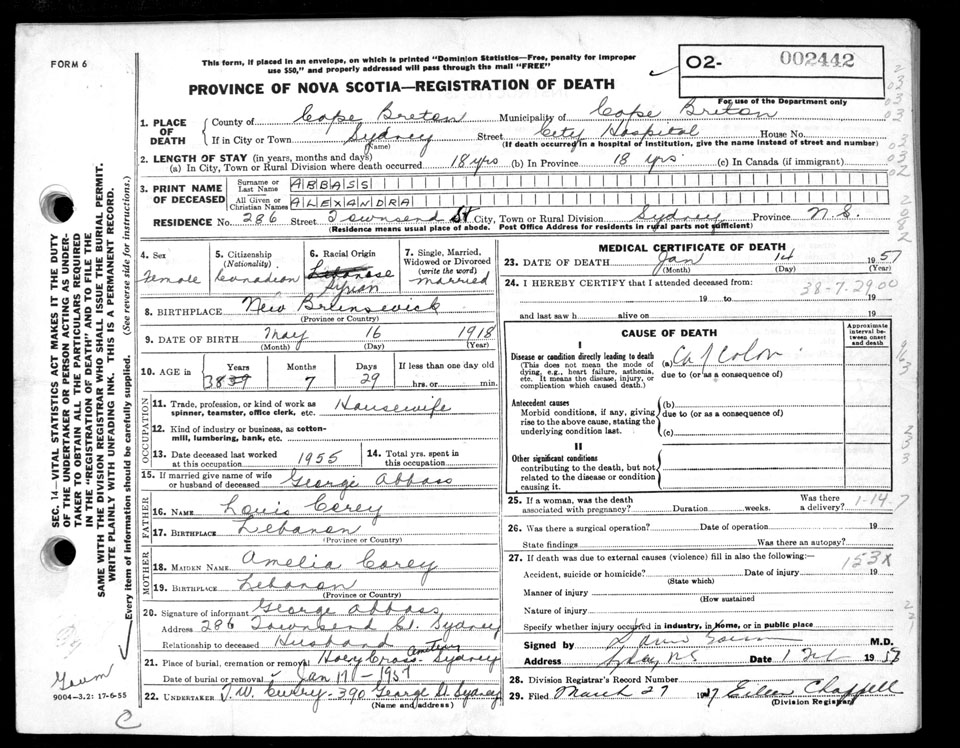 FORM 6
This form, if placed in an envelope, on which is printed "Dominion Statistics—Free, penalty for improper
use $50," and properly addressed will pass through the mail "FREE"
PROVINCE OF NOVA SCOTIA—REGISTRATION OF DEATH
O2- 002442
For use of the Department only
1. PLACE OF DEATH County of Cape Breton Municipality of Cape Breton
If in City or Town Sydney Street City Hospital House No.
(Name) (If death occurred in a hospital or institution, give the name instead of street and number)
2. LENGTH OF STAY (in years, months and days)
(a) In City, Town or Rural Division where death occurred 18 yrs (b) In Province 18 yrs. (c) In Canada (if immigrant)
3. PRINT NAME OF DECEASED Surname or Last Name ABBASS
All Given or Christian Names ALEXANDRA
RESIDENCE No. 286 Street Townsend St City, Town or Rural Division Sydney Province N.S.
(Residence means usual place of abode. Post Office Address for residents in rural parts not sufficient)
4. Sex Female
5. Citizenship (Nationality) Canadian
6. Racial Origin Lebanese Syrian
7. Single, Married, Widowed or Divorced (write the word) Married
8. BIRTHPLACE New Brunswick
(Province or Country)
9. DATE OF BIRTH May 16 1918
(Month) (Day) (Year)
10. AGE in Years Months Days If less than one day old
38 39 7 29 hrs. or min.
OCCUPATION
11. Trade, profession, or kind of work as spinner, teamster, office clerk, etc. Housewife
12. Kind of industry or business, as cotton-mill, lumbering, bank, etc.
13. Date deceased last worked at this occupation 1955 14. Total yrs. spent in this occupation
15. If married give name of wife or husband of deceased George Abbass
FATHER
16. NAME Louis Corey
17. BIRTHPLACE Lebanon
(Province or Country)
MOTHER
18. MAIDEN NAME Amelia Corey
19. BIRTHPLACE Lebanon
(Province or Country)
20. Signature of informant George Abbass
Address 286 Townsend St. Sydney
Relationship to deceased Husband
21. Place of burial, cremation or removal Holy Cross Cemetery Sydney
Date of burial or removal Jan 17 - 1957
22. UNDERTAKER J. W. Curry - 390 George St Sydney
(Name and address)
MEDICAL CERTIFICATE OF DEATH
23. DATE OF DEATH Jan 14 1957
(Month) (Day) (Year)
24. I HEREBY CERTIFY that I attended deceased from: 38-7.2900
19 to 19
and last saw h alive on 19
CAUSE OF DEATH
Approximate interval between onset and death
I
Disease or condition directly leading to death
(This does not mean the mode of dying, e.g., heart failure, asthenia, etc. It means the disease, injury, or complication which caused death.)
(a) Ca of Colon
due to (or as a consequence of)
Antecedent causes
Morbid conditions, if any, giving rise to the above cause, stating the underlying condition last.
(b)
due to (or as a consequence of)
(c)
II
Other significant conditions
contributing to the death, but not related to the disease or condition causing it.
25. If a woman, was the death associated with pregnancy? Duration weeks. Was there a delivery? 1-14.7
26. Was there a surgical operation? Date of operation 19
State findings Was there an autopsy?
27. If death was due to external causes (violence) fill in also the following:— 153X
Accident, suicide or homicide? Date of injury 19
(State which)
Manner of injury
(How sustained
Nature of injury
Specify whether injury occurred in industry, in home, or in public place
Signed by M.D.
Address Date 19 57
28. Division Registrar's Record Number
29. Filed March 27 1957 Eileen Chappell
(Division Registrar)
SEC. 14—VITAL STATISTICS ACT MAKES IT THE DUTY
OF THE UNDERTAKER OR PERSON ACTING AS UNDER-
TAKER TO OBTAIN ALL THE PARTICULARS REQUIRED
IN THE "REGISTRATION OF DEATH" AND TO FILE THE
SAME WITH THE DIVISION REGISTRAR WHO SHALL ISSUE THE BURIAL PERMIT.
WRITE PLAINLY WITH UNFADING INK. THIS IS A PERMANENT RECORD.
Every item of information should be carefully supplied. (See reverse side for instructions.)
9004—3.2: 17-6-55